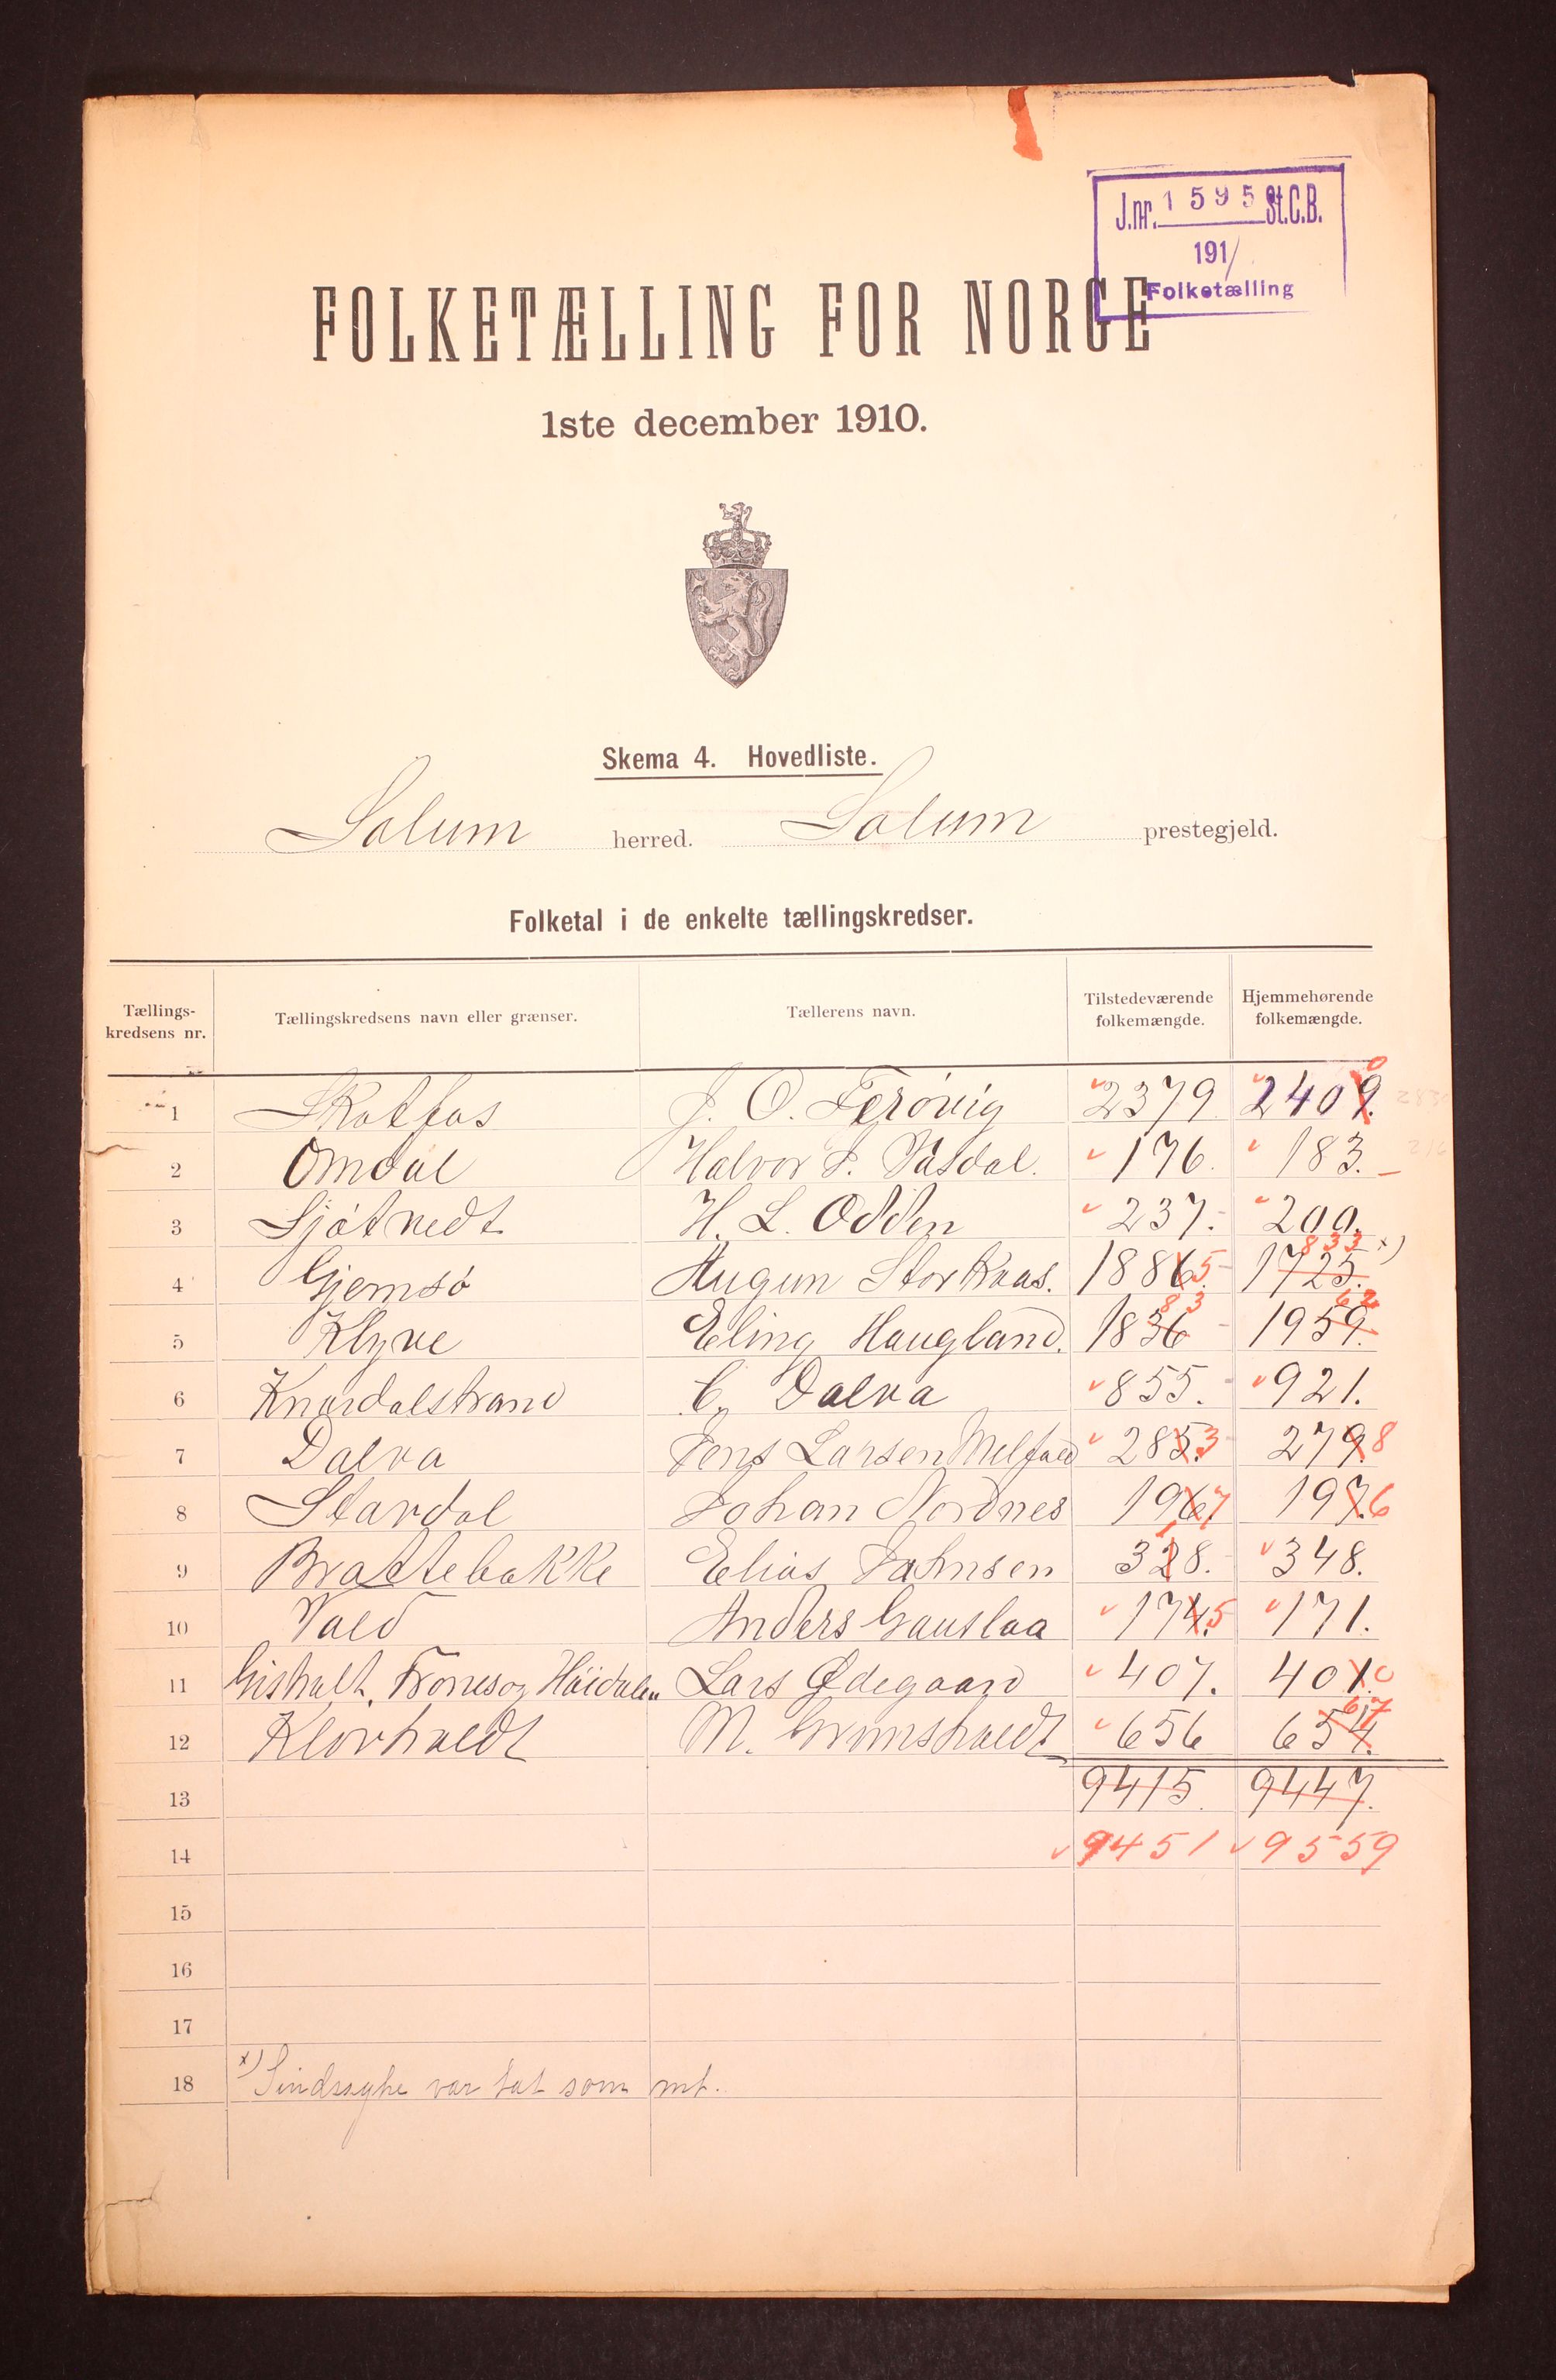 J.nr. 1595 St.C.B.
191/
Folketælling
FOLKETÆLLING FOR NORGE
1ste december 1910.
Skema 4. Hovedliste.
Solum herred. Solum prestegjeld.
Folketal i de enkelte tællingskredser.
Tællings-kredsens nr. Tællingskredsens navn eller grænser. Tællerens navn. Tilstedeværende folkemængde. Hjemmehørende folkemængde.
1 Skotfos J. O. Ferövig 2379 2409. 0
2 Omdal Halvor J. Våsdal. 176. 183.
3 Sjötvedt H. L. Odden 237. 200.
4 Gjemsö Augun Storkaas. 1886. 5 1725. 833 x)
5 Klyve Erling Haugland. 1836 83 1959. 62
6 Knardalstrand C. Dalva 855. 921.
7 Dalva Jens Larsen Melfald 285. 3 279. 8
8 Stavdal Johan Nordnes 196. 7 197. 6
9 Brattebakke Elias Johnsen 328. 1 348.
10 Vold Anders Gautlaa 174. 5 171.
11 Gisholt, Frones og Höidalen Lars Ødegaard 407. 401. 0
12 Klovholdt M. Grimsholdt 656 654. 67
13 9415. 9447.
14 9451 9559
15
16
17
18 x) Sindssyke var tat som mt.